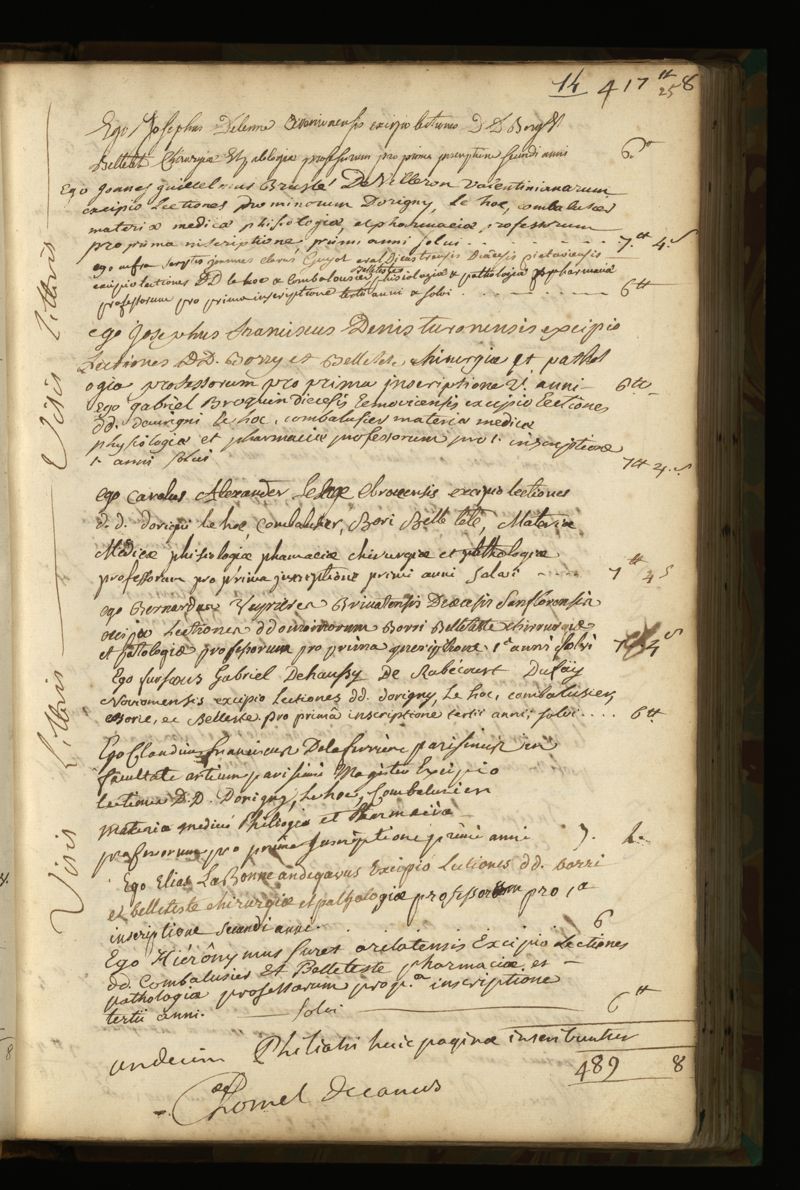 14 417 ₶ 8
25
Ego Josephus Delerme Avenionensis excipio lectiones D D Bory &
Belletet Chirurgiæ Et pathologiæ professorum pro prima inscriptione secundi anni 6 ₶
Ego Joannes guillelmus Bruslé DeVilleron Valentinianarum
excipio Lectiones Dominorum Dorigny, Le hoc, combalusier
materiæ medicæ phisiologiæ, et pharmaciæ, professorum
pro prima inscriptione, primi anni solvi . . . . . . 7 ₶ 4 s
ego infra scriptus joannes Guyot Diœcesis pictaviensis
excipio lectiones DD le hoc & Combalousier Belleteste phisiologiæ & pathologiæ & pharmaciæ
professorum pro prima inscriptione tertii anni & solvi . . . . 6 ₶
ego Josephus franciscus Denis turonensis excipio
Lectiones DD. Borry et Belletete chirurgiæ et pathol
ogiæ professorum pro prima inscriptione 2. anni 6 ₶
Ego gabriel Broquin diœcesis Lemovicensis excipio lectiones
dd. dourigni le hoc, combalusier materiæ medicæ
physiologiæ et pharmaciæ professorum pro 1. inscriptione
1. anni solvi 7 ₶ 4. s.
ego Carolus Alexander ebroicensis excipio lectiones
d. d. dorigni le hoc, Combalusier, Bori Belle tete, Materiæ
Medicæ phisiologiæ phamaciæ chirurgiæ et pathologiæ
professorum pro prima inscriptione primi anni solvi - - - - 7 ₶ 4 s
ego Bernardus Veyrieres Brivatensis Diœcesis Sanflorensis
excipio Lectiones ddominorum Borri Belleteste chirurgiæ
et patologiæ professorum pro prima inscriptione 1ᵉ anni solvi 7 ₶ 4 s
Ego surfaus Gabriel Dehaussy De Rabécourt Dufay
Noviomensis excipio Lectiones dd. dorigny, Le hoc, combalusier,
Borie, et Belleteste pro primâ inscriptione tertii anni; solvi . . . . 6 ₶
Ego Claudius franciscus Delaferriere parisinus in
facultate artium parisiensi Magister Excipio
lectiones D.D. Dorigny, Le hoc, Combalusier
materiæ medicæ Phisiologiæ et Pharmaciæ
professorum pro prima Inscriptione primi anni 7. 4.
Ego Elias LaBonne andegavus Excipio Lectiones dd. borri
et belleteste chirurgiæ et pathologiæ professorum pro 1.ª
inscriptione secundi anni. 6
Ego Hiérônymus Suret arelatensis Excipio Lectiones
dd. Combalusier Et Belleteste pharmaciæ et
pathologiæ professorum pro p.ª inscriptione
tertii anni. solvi 6 ₶
undecim Philiatri huic paginæ inscribuntur
489 8
Chomel decanus
Visis Litteris Visis litteris